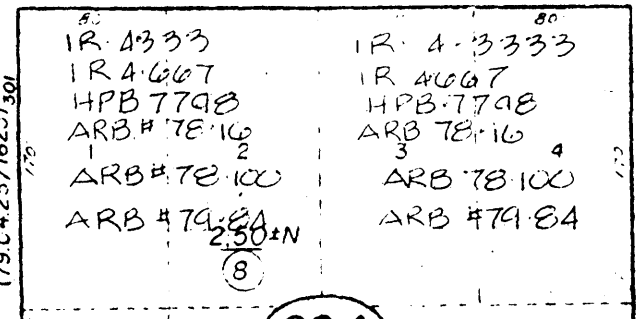 80
IR. 4333
IR 4.667
HPB 7798
ARB.# 78.16
1 2
ARB# 78.100
ARB #79.84
2.50±N
8
80
IR. 4-3333
IR 4667
HPB.7798
ARB 78.16
3 4
ARB 78.100
ARB #79.84
170
301
170